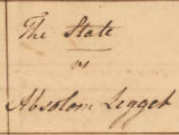 The State
vs
Absolom Legget